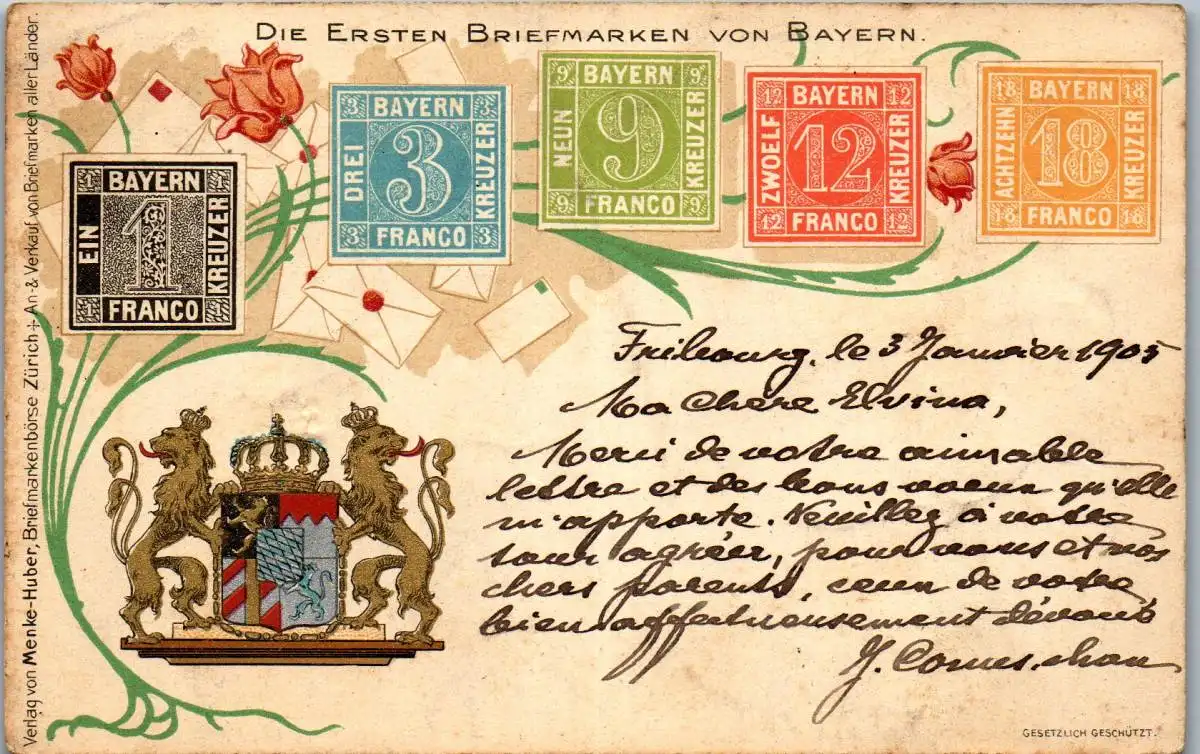 DIE ERSTEN BRIEFMARKEN VON BAYERN.
Verlag von Menke-Huber, Briefmarkenbörse Zürich + An- & Verkauf von Briefmarken aller Länder.
BAYERN
EIN
1
KREUZER
FRANCO
3 BAYERN 3
DREI
3
KREUZER
3 FRANCO 3
9 BAYERN 9
NEUN
9
KREUZER
9 FRANCO 9
12 BAYERN 12
ZWOELF
12
KREUZER
12 FRANCO 12
18 BAYERN 18
ACHTZEHN
18
KREUZER
18 FRANCO 18
Fribourg, le 3 Janvier 1905
Ma chère Elvina,
Merci de votre aimable
lettre et des bons voeux qu'elle
m'apporte. Veuillez à votre
tour agréer, pour vous et vos
chers parents, ceux de votre
bien affectueusement dévoué
J.
GESETZLICH GESCHÜTZT.